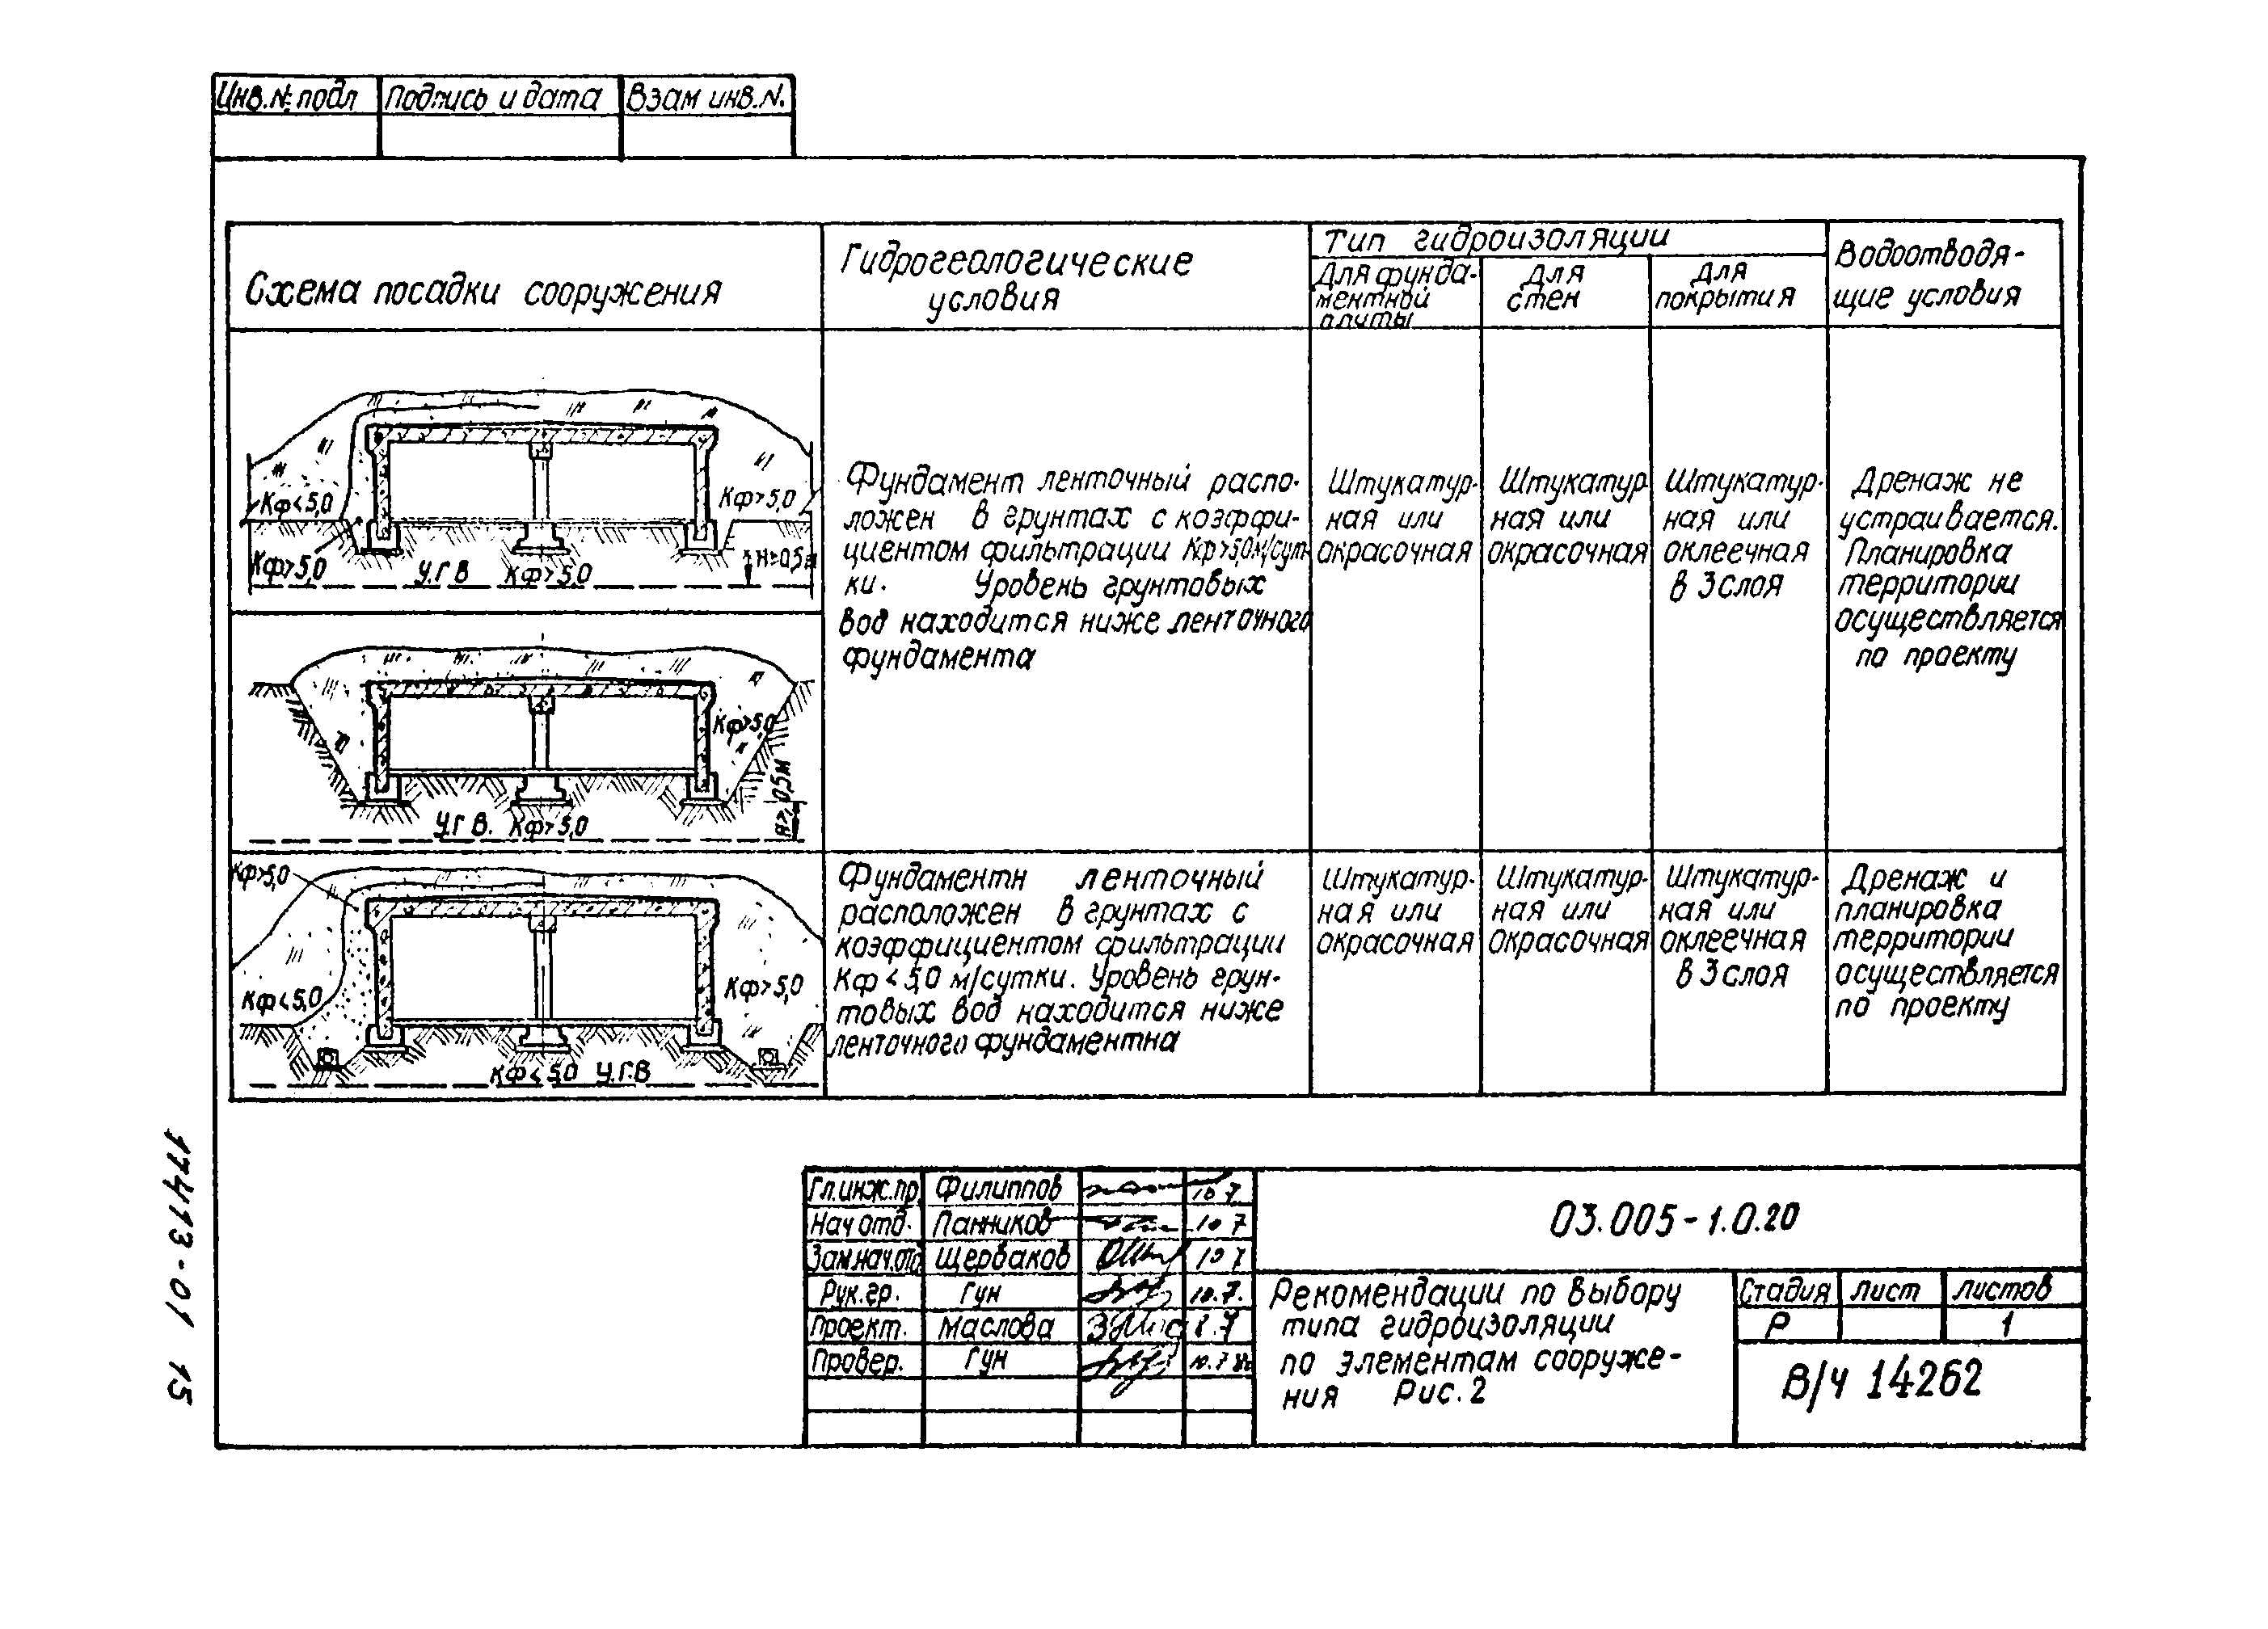 Инв.№ подл Подпись и дата Взам инв.N.
Схема посадки сооружения
Гидрогеологические
условия
Тип гидроизоляции
Для фунда-
ментной
плиты
Для
стен
Для
покрытия
Водоотводя-
щие условия
Кф<5,0
Кф>5,0
Кф>5,0
У.Г В
Кф>5,0
Кф>5,0
0,5м
У.Г В. Кф>5,0
Фундамент ленточный распо-
ложен в грунтах с коэффи-
циентом фильтрации Кф>5,0м/сут-
ки. Уровень грунтовых
вод находится ниже ленточного
фундамента
Штукатур-
ная или
окрасочная
Штукатур
ная или
окрасочная
Штукатур-
ная или
оклеечная
в 3 слоя
Дренаж не
устраивается.
Планировка
территории
осуществляется
по проекту
Кф>5,0
Кф<5,0
Кф>5,0
Кф<5,0 У.Г.В
Фундаментн ленточный
расположен в грунтах с
коэффициентом фильтрации
Кф<5,0 м/сутки. Уровень грун-
товых вод находится ниже
ленточного фундаментна
Штукатур-
ная или
окрасочная
Штукатур-
ная или
окрасочная
Штукатур-
ная или
оклеечная
в 3 слоя
Дренаж и
планировка
территории
осуществляется
по проекту
17413-01 15
Гл.инж.пр. Филиппов 10 7
Нач отд. Панников 10 7
Зам.нач.отд Щербаков 10 7
Рук.гр. Гун 10.7.
Проект. Маслова
Провер. Гун 10.7
03.005-1.0.20
Рекомендации по выбору
типа гидроизоляции
по элементам сооруже-
ния Рис.2
Стадия Лист Листов
Р 1
В/ч 14262